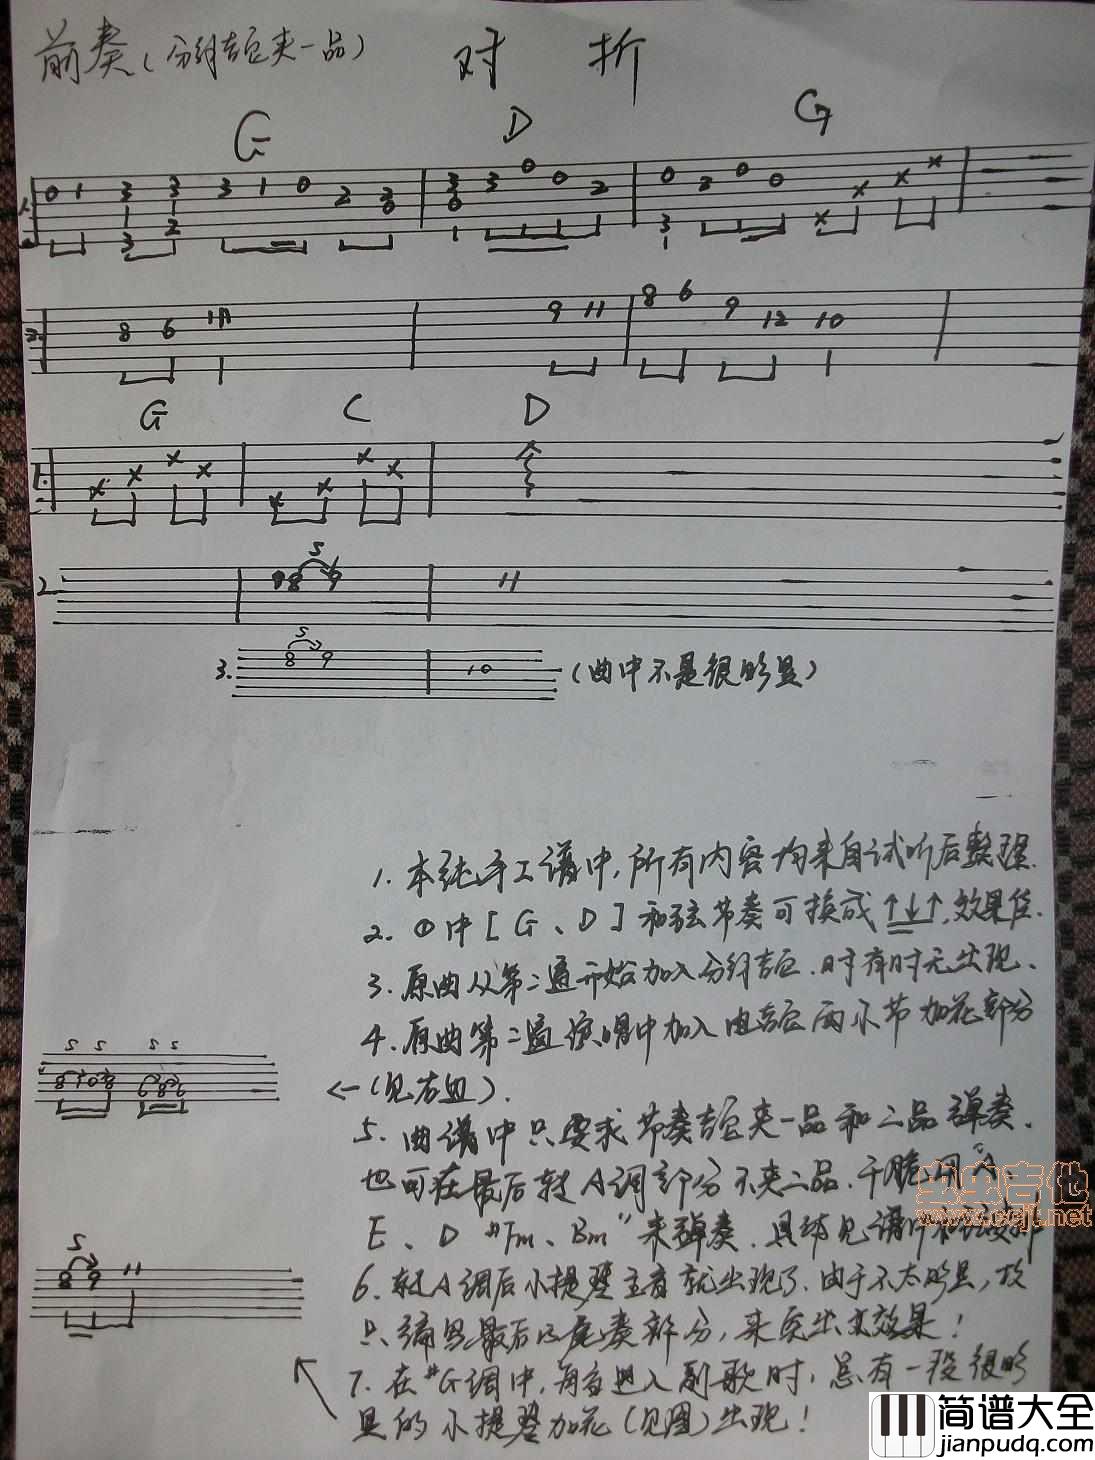 前奏(分解吉它夹一品) 对 折
G D G
1.
0 1 3 3 3 1 0 2 3 3 3 0 0 2 0 2 0 0 × × × ×
3 2 0 0 3
2.
8 6 11 9 11 8 6 9 12 10
G C D
1.
× × × × × × × ×
S
2. 8 9 11
S
3. 8 9 10 (曲中不是很明显)
1. 本纯手工谱中,所有内容均来自试听后整理.
2. ①中[G、D]和弦节奏可换成↑↓↑,效果佳.
3. 原曲从第二遍开始加入分解吉它.时有时无出现.
4. 原曲第二遍演唱中加入电吉它两小节加花部分
S S S S
8 10 8 6 8 6
←(见左面).
5. 曲谱中只要求节奏吉它夹一品和二品弹奏.
也可在最后转A调部分不夹二品.干脆用"A、
E、D #Fm、Bm"来弹奏.具体见谱中和弦安排
S
8 9 11
6. 转A调后小提琴主音就出现了.由于不太明显,故
只编写最后的尾奏部分,来突出其效果!
7. 在#G调中,每当进入副歌时,总有一段很明
显的小提琴加花(见图)出现!
虫虫吉他
www.ccjt.net
简谱大全
jianpudq.com